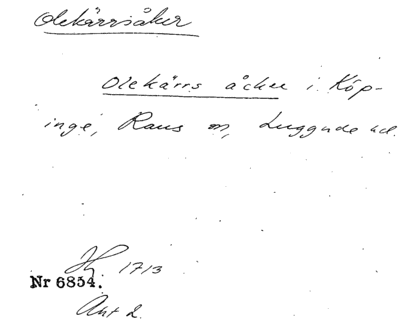 Olekärrsåker
Olekärrs åcker i Köp-
inge, Raus sn, Luggude hd.
1713
Nr 6854.
Akt 2.